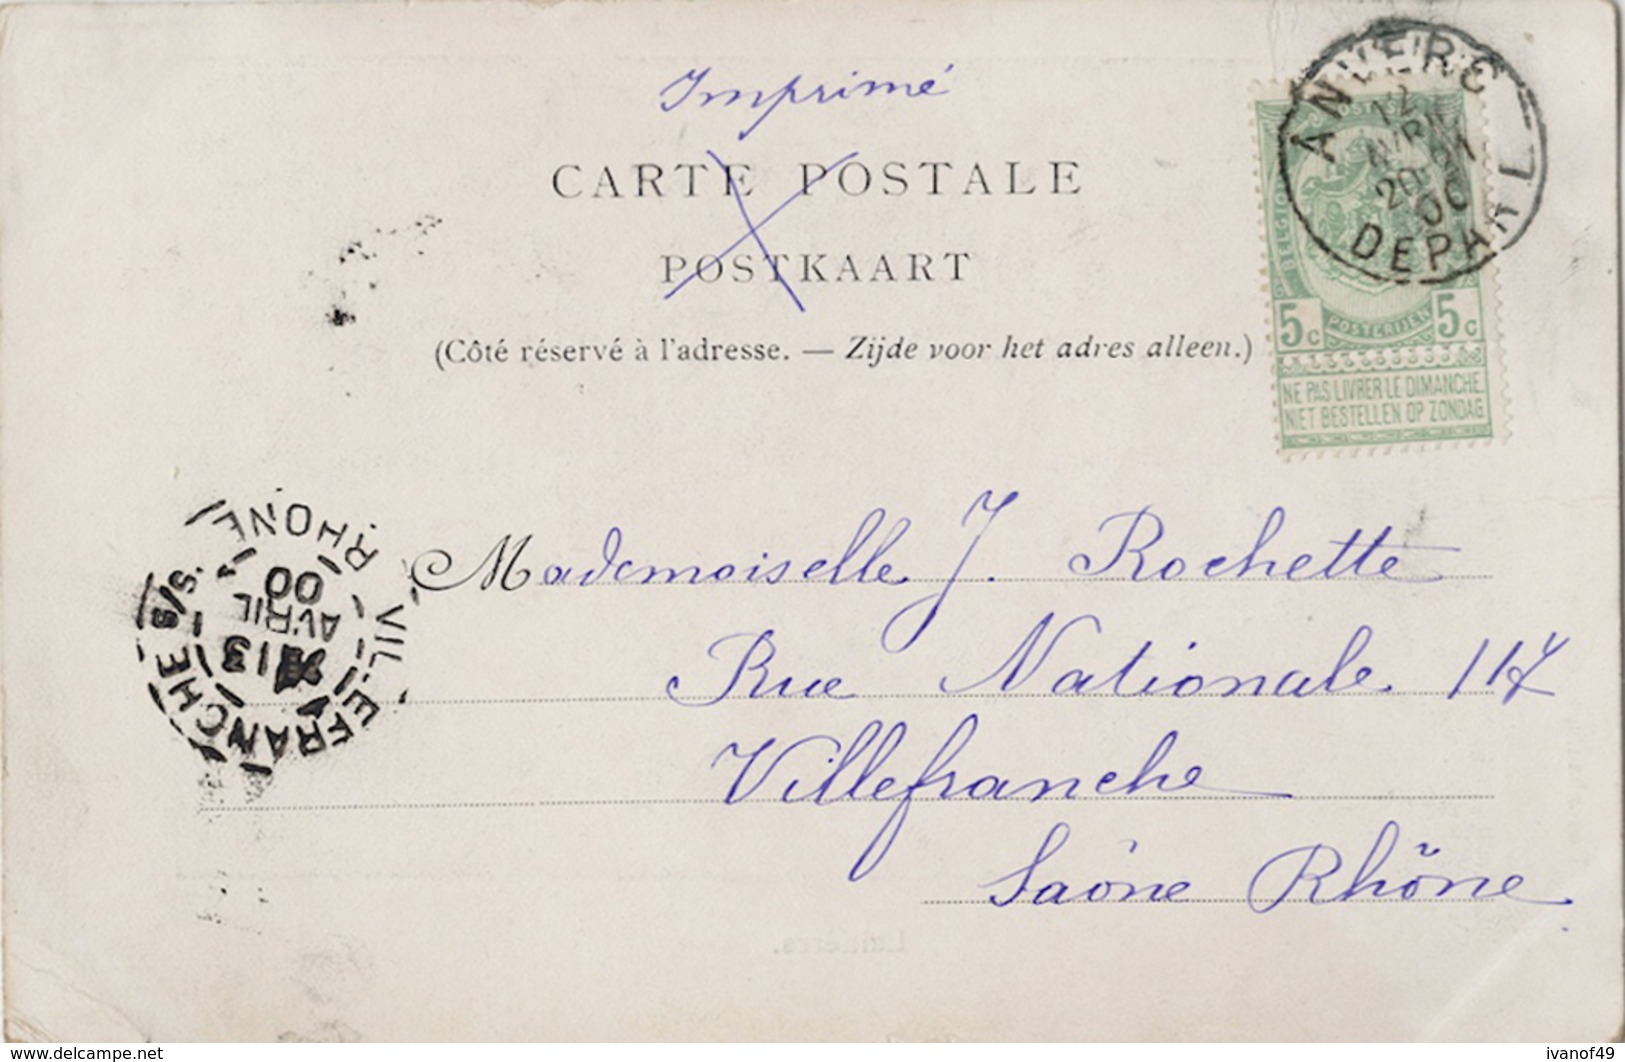 Imprimé
CARTE POSTALE
POSTKAART
(Côté réservé à l'adresse. — Zijde voor het adres alleen.)
ANVERS
12
AVRIL
20
00
DEPART
BELGIQUE
5c POSTERIJEN 5c
NE PAS LIVRER LE DIMANCHE
NIET BESTELLEN OP ZONDAG
VILLEFRANCHE S/S.
RHONE
13
AVRIL
00
Mademoiselle J. Rochette
Rue Nationale 117
Villefranche
Saône Rhône
Laitières.
www.delcampe.net
ivanof49